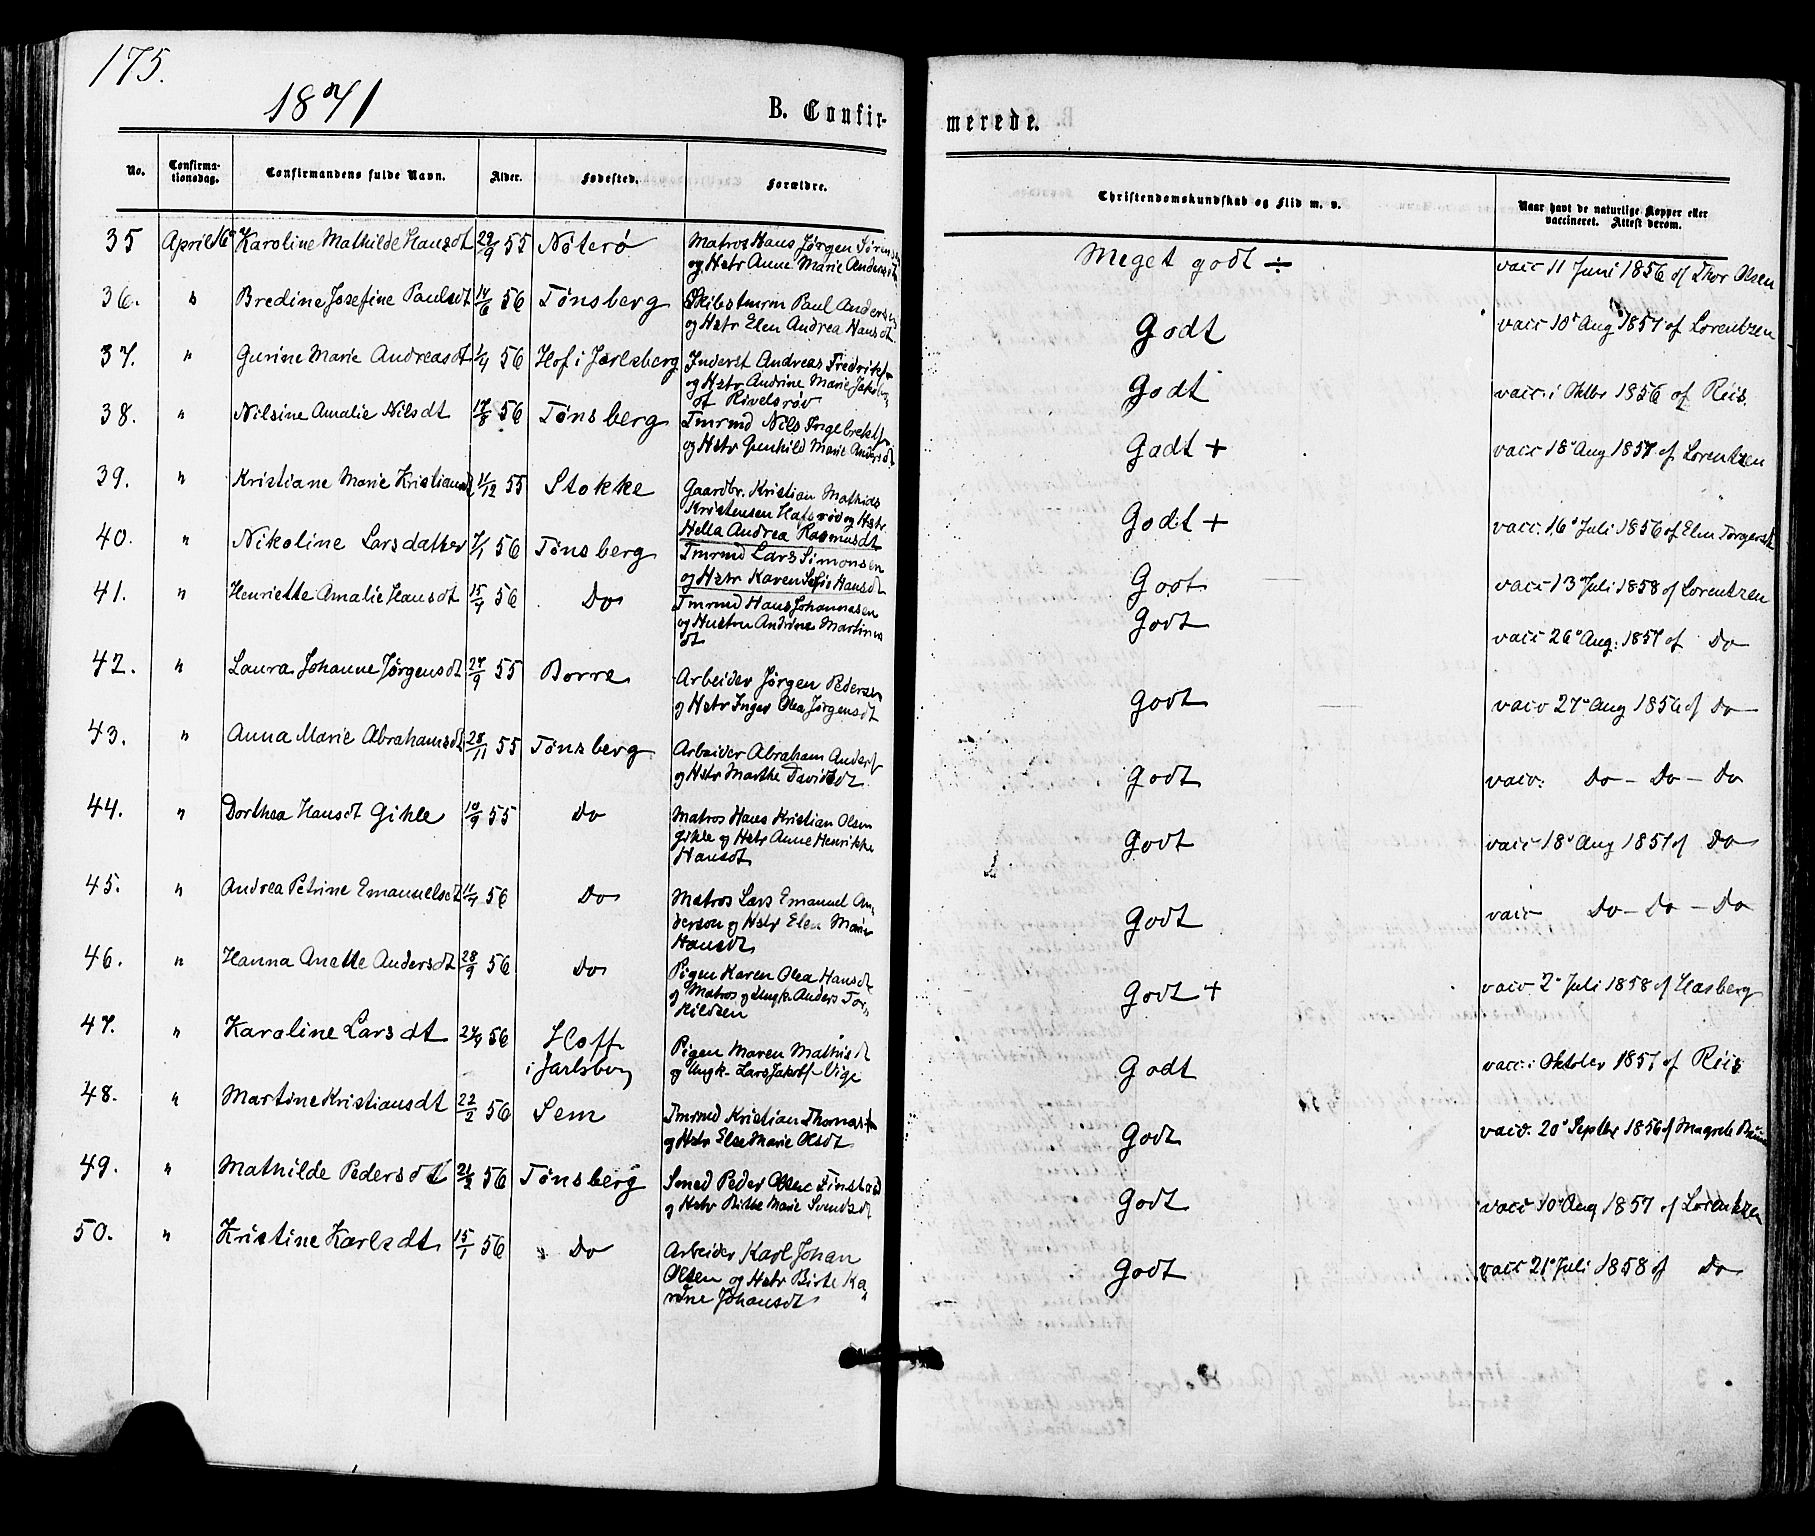 175.
1871
B. Confir-
merede.
No.
Confirma-
tionsdag.
Confirmandens fulde Navn.
Alder.
Fødested.
Forældre.
Christendomskundskab og Flid m. v.
Naar havt de naturlige Kopper eller
vaccineret. Attest derom.
35 April 16 Karoline Mathilde Hansdt 29/9 55 Nøterø
Matros Hans Jørgen Sørensen
og Hstr Anne Marie Andersdt
Meget godt ÷
vacc 11 Juni 1856 af Thor Olsen
36. " Bredine Josefine Paulsdt 14/6 56 Tønsberg
Skibstmrm Paul Andersen
og Hstr Elen Andrea Hansdt
Godt
vacc 10 Aug 1857 af Lorentzen
37. " Gurine Marie Andreasdt 1/4 56 Hof i Jarlsberg
Inderst Andreas Fredriks-
og Hstr Andrine Marie Jakobs
af Rivelsrøv
Godt
vacc i Oktbr 1856 af Riis.
38. " Nilsine Amalie Nilsdt 17/8 56 Tønsberg
Tmrmd Nils Ingebrekts-
og Hstr Gunhild Marie Andersdt
Godt +
vacc 18 Aug 1857 af Lorentzen
39. " Kristiane Marie Kristiansdt 11/12 55 Stokke
Gaardbr. Kristian Mathias
Kristensen Hafsrød og Hstr
Hella Andrea Rasmusdt
Godt +
vacc. 16 Juli 1856 af Elen Torgersdt
40. " Nikoline Larsdatter 7/1 56 Tønsberg
Tmrmd Lars Simonsen
og Hstr Karen Sofie Hansdt
Godt
vacc 13 Juli 1858 af Lorentzen
41. " Henriette Amalie Hansdt 15/4 56 Do
Tmrmd Hans Johannesen
og Hustru Andrine Martinus
dt
Godt
vacc 26 Aug. 1857 af Do
42. " Laura Johanne Jørgensdt 27/9 55 Borre
Arbeider Jørgen Pedersen
og Hstr Inger Olea Jørgensdt
Godt
vacc 27 Aug 1856 af Do
43. " Anna Marie Abrahamsdt 28/11 55 Tønsberg
Arbeider Abraham Anders-
og Hstr Marthe Davidsdt
Godt
vacc. Do – Do – Do
44. " Dorthea Hansdt Gihle 10/9 55 Do
Matros Hans Kristian Olsen
Gihle og Hstr Anne Henrikke
Hansdt
Godt
vacc 18 Aug 1857 af Do
45. " Andrea Petrine Emanuelsdt 11/4 56 Do
Matros Lars Emanuel An-
derson og Hstr Elen Marie
Hansdt
Godt
vacc Do – Do – Do
46. " Hanna Anette Andersdt 28/9 56 Do
Pigen Karen Olea Hansdt
og Matros og Ungk. Anders Tor-
kildsen
Godt +
vacc 2 Juli 1858 af Hasberg
47. " Karoline Larsdt 24/4 56 Hoff
i Jarlsberg
Pigen Maren Mathisdt
og Ungk. Lars Jakobs- Vige
Godt
vacc. i Oktober 1857 af Riis
48. " Martine Kristiansdt 22/2 56 Sem
Tmrmd Kristian Thomas-
og Hstr Else Marie Olsdt
Godt
vacc. 20 Septbr 1856 af Magrete
49. " Mathilde Pedersdt 21/2 56 Tønsberg
Smed Peder Olsen Finstad
og Hstr Birthe Marie Svendsdt
Godt
vacc 10 Aug 1857 af Lorentzen
50. " Kristine Karlsdt 15/1 56 Do
Arbeider Karl Johan
Olsen og Hstr Birte Ka-
rine Johansdt
Godt
vacc 21 Juli 1858 af Do